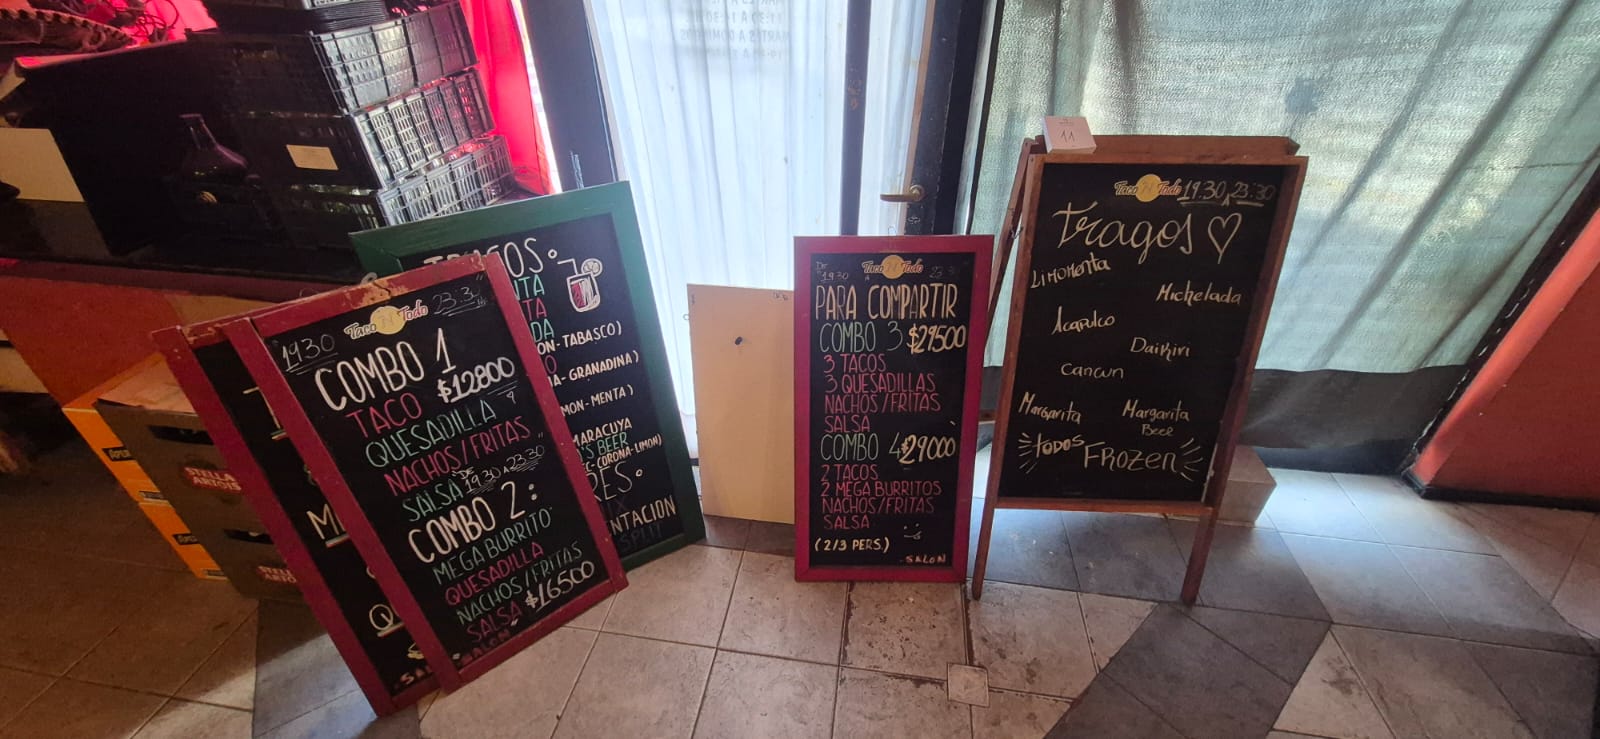 Taco N Todo
19:30 23:30
COMBO 1
$12800
TACO
QUESADILLA
NACHOS/FRITAS
SALSA
DE 19.30 A 23.30
COMBO 2:
MEGA BURRITO
QUESADILLA
NACHOS/FRITAS
SALSA $16500
SALON
TRAGOS
ON-TABASCO)
A-GRANADINA)
MON-MENTA)
MARACUYA
'S BEER
EC-CORONA-LIMON)
RES
NTACION
SPLIT
STELLA ARTOIS
DE 19:30 A
Taco N Todo
PARA COMPARTIR
COMBO 3 $29500
3 TACOS
3 QUESADILLAS
NACHOS/FRITAS
SALSA
COMBO 4 $29000
2 TACOS
2 MEGA BURRITOS
NACHOS/FRITAS
SALSA
(2/3 PERS.)
SALON
11
Taco N Todo 19:30 A 23:30
Tragos
Limonenta
Michelada
Acapulco
Daikiri
Cancun
Margarita
Margarita
Beer
TODOS FROZEN